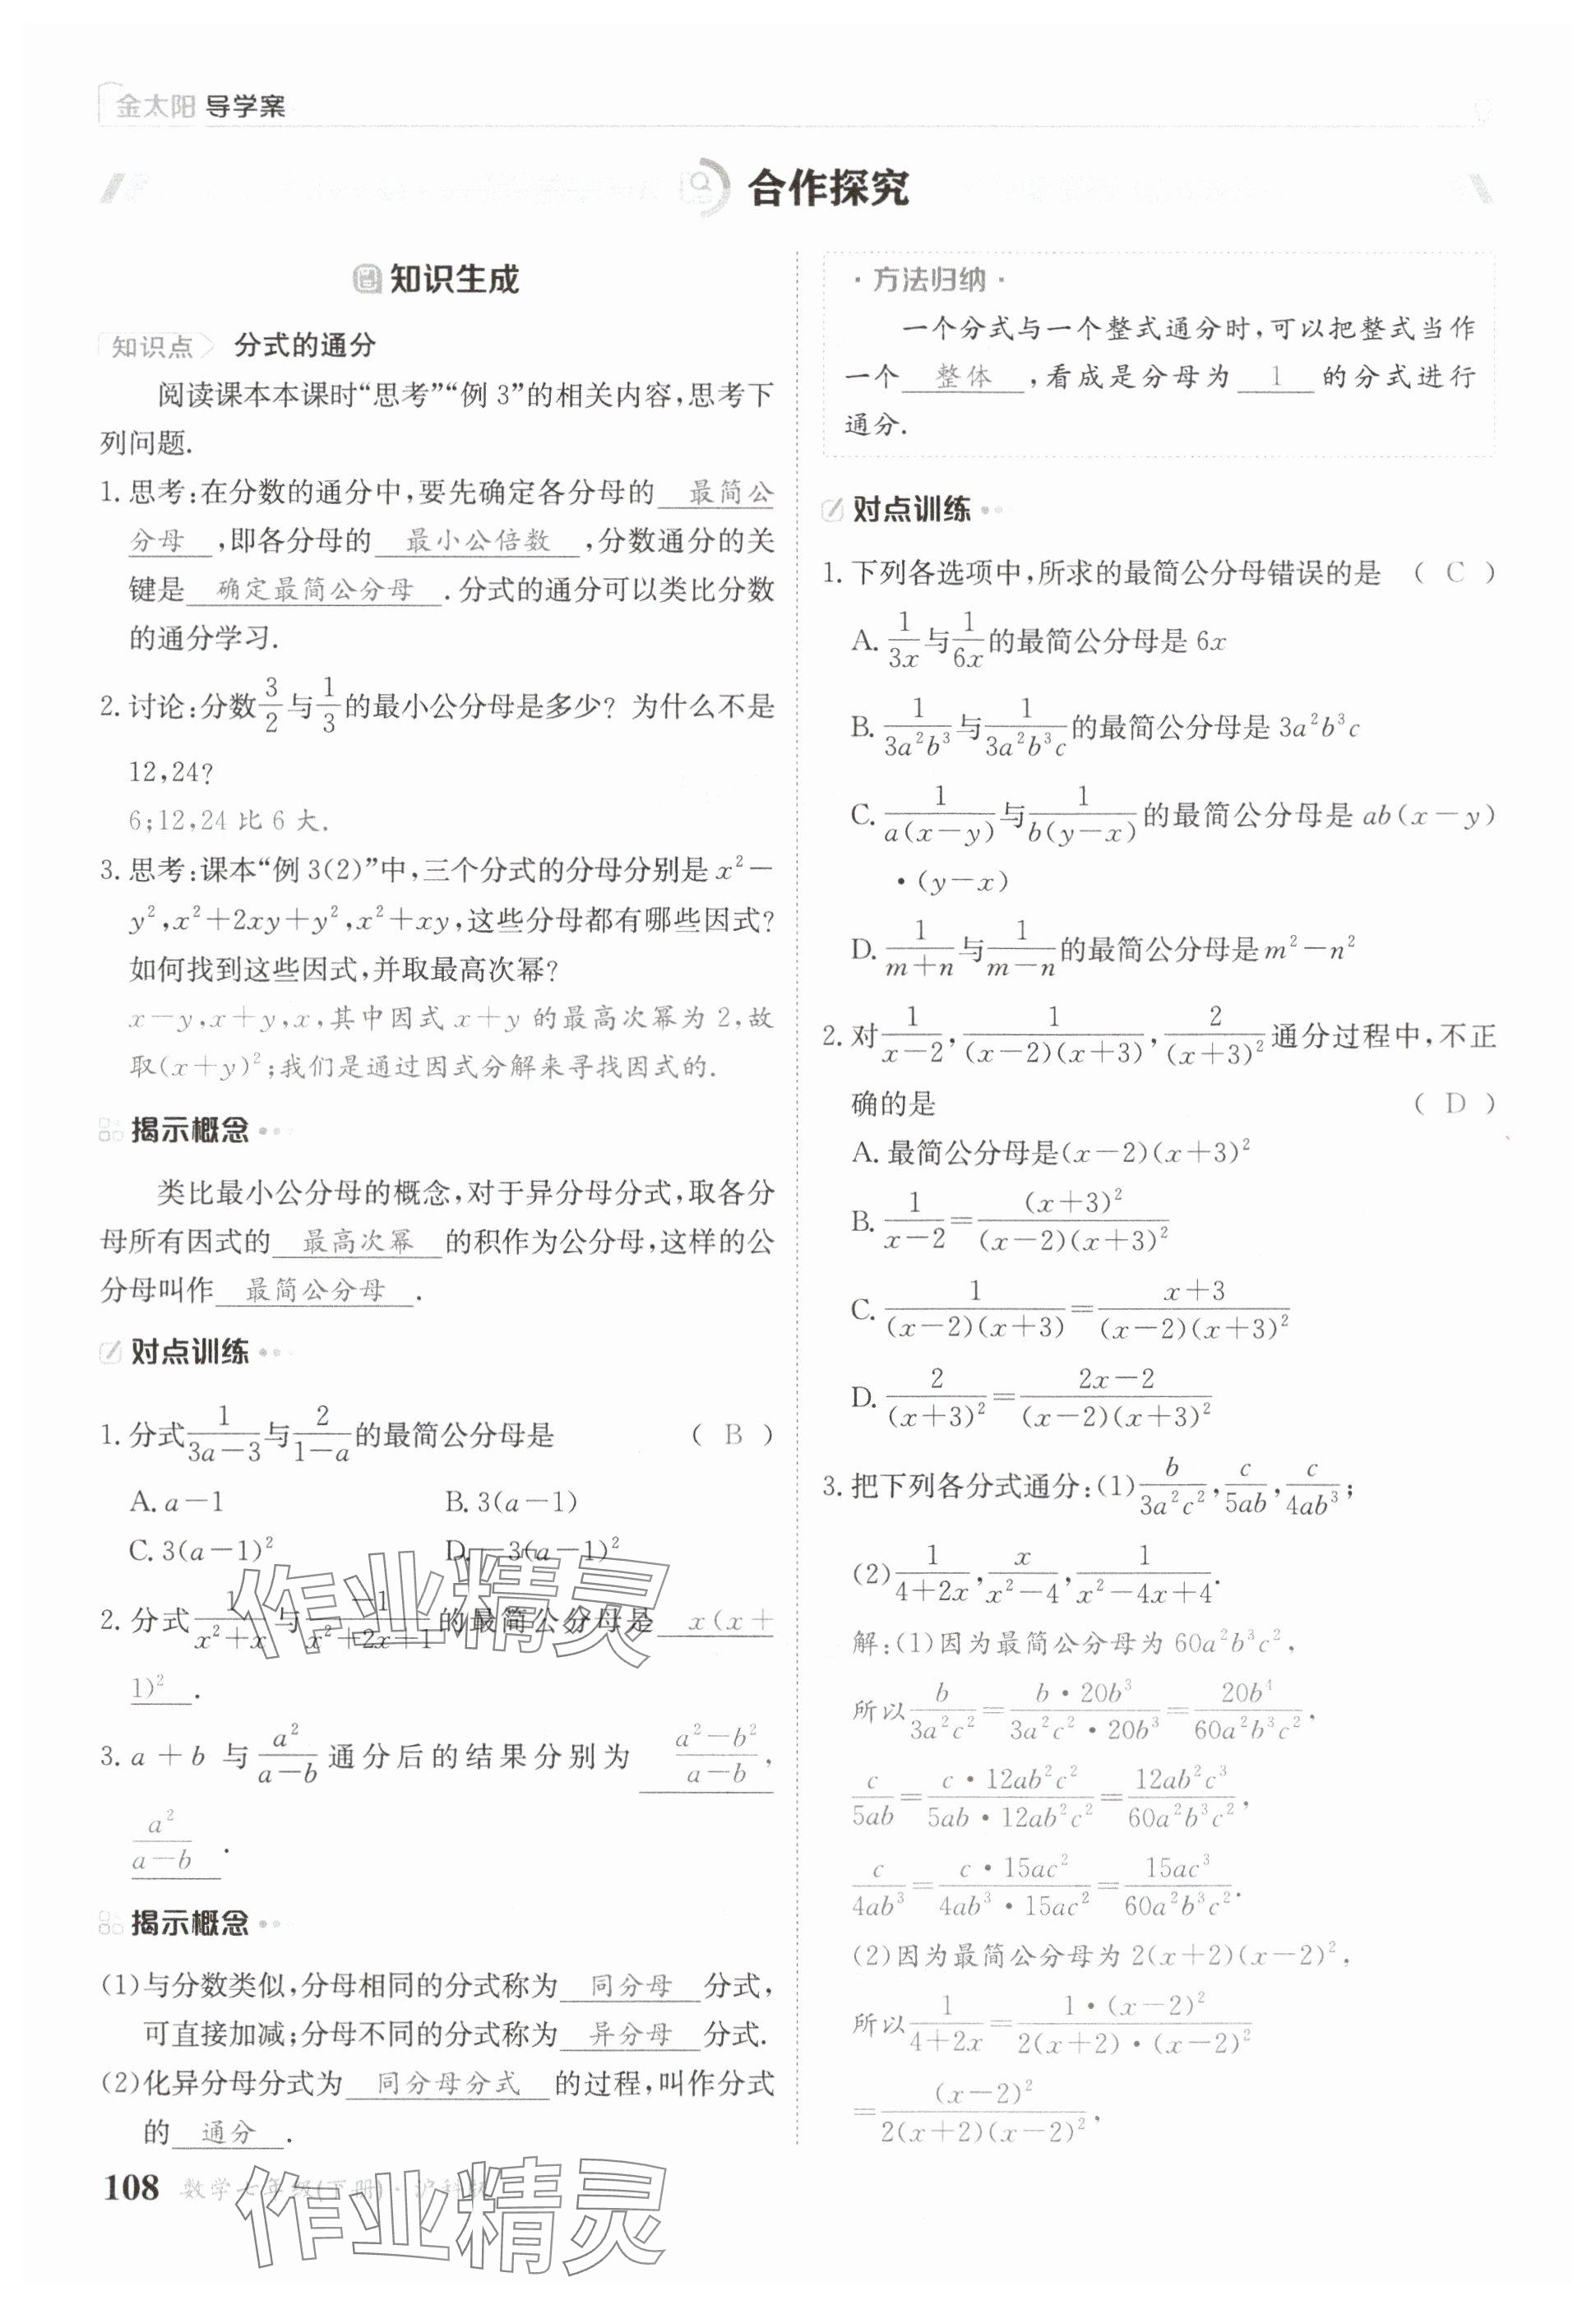 金太阳 导学案
合作探究
知识生成
知识点 分式的通分
阅读课本本课时“思考”“例 3”的相关内容,思考下
列问题.
1. 思考:在分数的通分中,要先确定各分母的 最简公
分母 ,即各分母的 最小公倍数 ,分数通分的关
键是 确定最简公分母 .分式的通分可以类比分数
的通分学习.
2. 讨论:分数 3/2 与 1/3 的最小公分母是多少? 为什么不是
12,24?
6;12,24 比 6 大.
3. 思考:课本“例 3(2)”中,三个分式的分母分别是 x²−
y²,x²+2xy+y²,x²+xy,这些分母都有哪些因式?
如何找到这些因式,并取最高次幂?
x−y,x+y,x,其中因式 x+y 的最高次幂为 2,故
取(x+y)²;我们是通过因式分解来寻找因式的.
揭示概念
类比最小公分母的概念,对于异分母分式,取各分
母所有因式的 最高次幂 的积作为公分母,这样的公
分母叫作 最简公分母 .
对点训练
1. 分式 1/(3a−3) 与 2/(1−a) 的最简公分母是 ( B )
A. a−1 B. 3(a−1)
C. 3(a−1)² D. −3(a−1)²
2. 分式 1/(x²+x) 与 −1/(x²+2x+1) 的最简公分母是 x(x+
1)² .
3. a+b 与 a²/(a−b) 通分后的结果分别为 (a²−b²)/(a−b) ,
a²/(a−b) .
揭示概念
(1)与分数类似,分母相同的分式称为 同分母 分式,
可直接加减;分母不同的分式称为 异分母 分式.
(2)化异分母分式为 同分母分式 的过程,叫作分式
的 通分 .
108 数学七年级(下册)·沪科版
·方法归纳·
一个分式与一个整式通分时,可以把整式当作
一个 整体 ,看成是分母为 1 的分式进行
通分.
对点训练
1. 下列各选项中,所求的最简公分母错误的是 ( C )
A. 1/(3x) 与 1/(6x) 的最简公分母是 6x
B. 1/(3a²b³) 与 1/(3a²b³c) 的最简公分母是 3a²b³c
C. 1/(a(x−y)) 与 1/(b(y−x)) 的最简公分母是 ab(x−y)
·(y−x)
D. 1/(m+n) 与 1/(m−n) 的最简公分母是 m²−n²
2. 对 1/(x−2), 1/((x−2)(x+3)), 2/(x+3)² 通分过程中,不正
确的是 ( D )
A. 最简公分母是(x−2)(x+3)²
B. 1/(x−2) = (x+3)²/((x−2)(x+3)²)
C. 1/((x−2)(x+3)) = (x+3)/((x−2)(x+3)²)
D. 2/(x+3)² = (2x−2)/((x−2)(x+3)²)
3. 把下列各分式通分:(1) b/(3a²c²), c/(5ab), c/(4ab³);
(2) 1/(4+2x), x/(x²−4), 1/(x²−4x+4).
解:(1)因为最简公分母为 60a²b³c²,
所以 b/(3a²c²) = (b·20b³)/(3a²c²·20b³) = 20b⁴/(60a²b³c²),
c/(5ab) = (c·12ab²c²)/(5ab·12ab²c²) = 12ab²c³/(60a²b³c²),
c/(4ab³) = (c·15ac²)/(4ab³·15ac²) = 15ac³/(60a²b³c²).
(2)因为最简公分母为 2(x+2)(x−2)²,
所以 1/(4+2x) = (1·(x−2)²)/(2(x+2)·(x−2)²)
= (x−2)²/(2(x+2)(x−2)²),
作业精灵
作业精灵